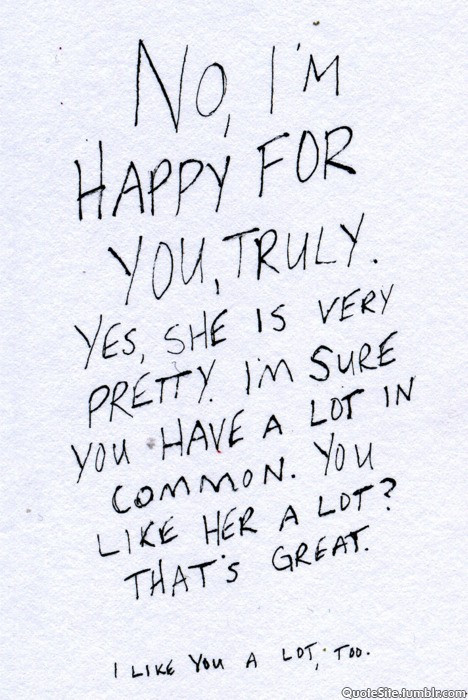 NO, I'M
HAPPY FOR
YOU, TRULY.
YES, SHE IS VERY
PRETTY. I'M SURE
YOU HAVE A LOT IN
COMMON. YOU
LIKE HER A LOT?
THAT'S GREAT.
I LIKE YOU A LOT, TOO.
QuoteSite.tumblr.com